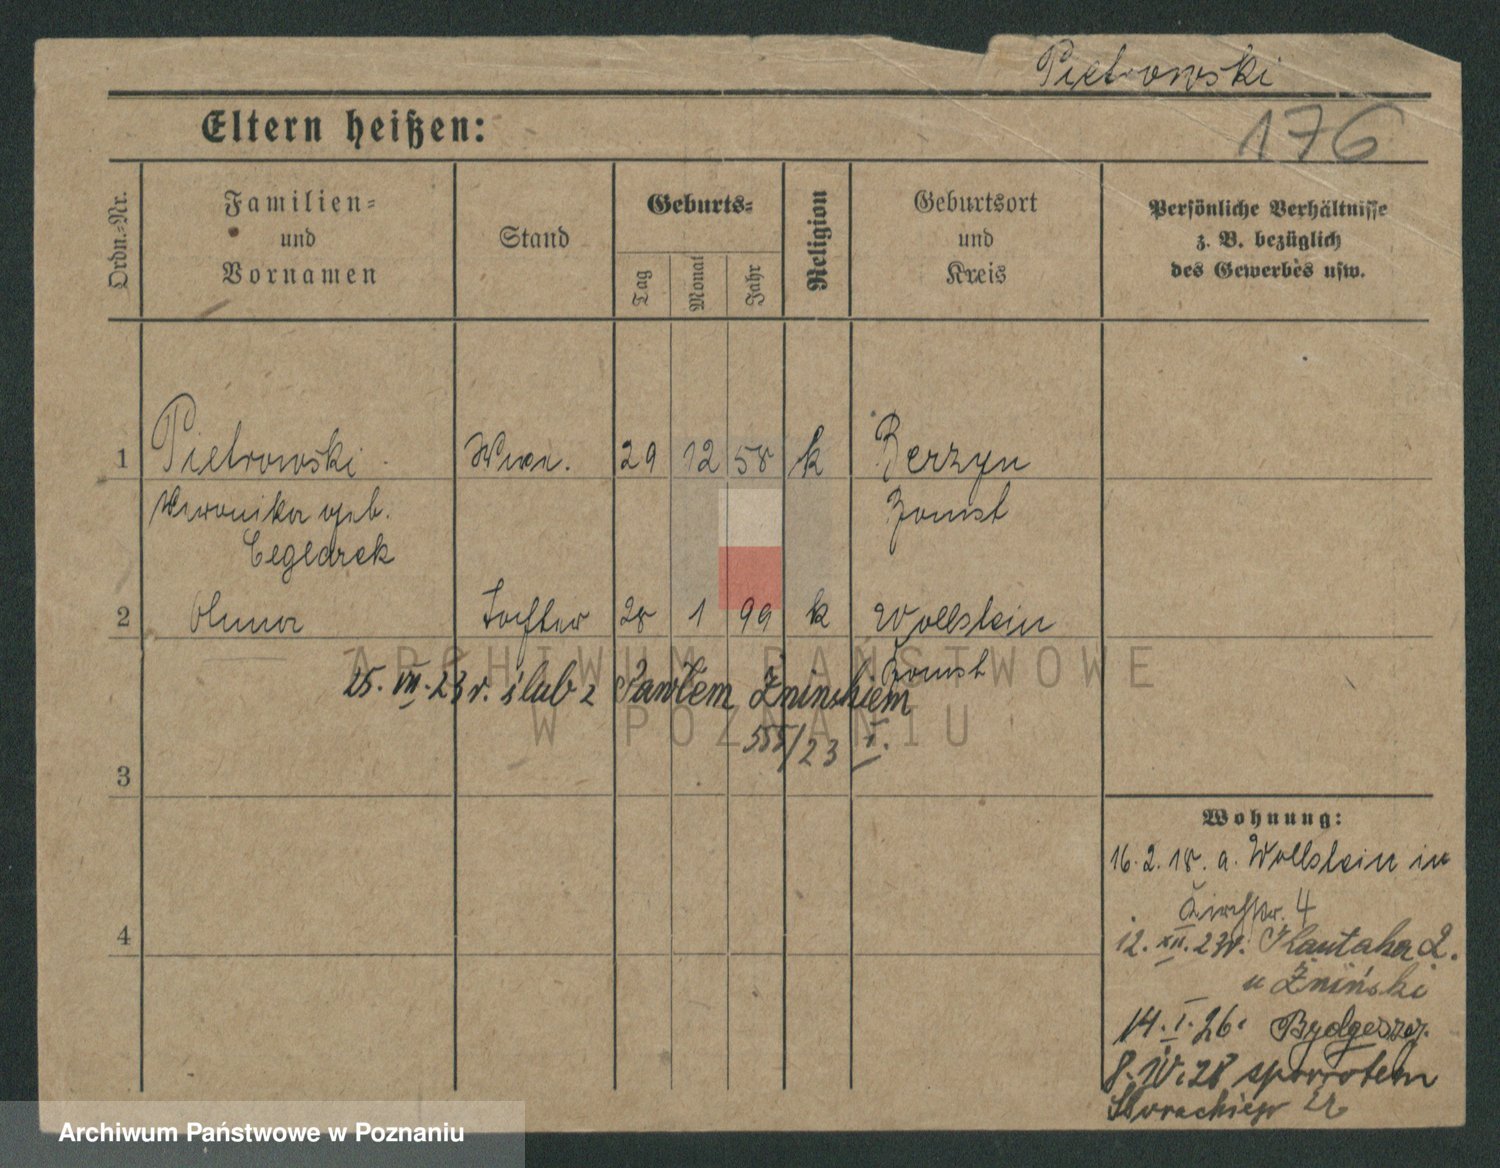 Pietrowski
176
Eltern heißen:
Ordn.-Nr.
Familien- und Vornamen
Stand
Geburts-
Tag
Monat
Jahr
Religion
Geburtsort und Kreis
Persönliche Verhältnisse z. B. bezüglich des Gewerbes usw.
1 Pietrowski 29 12 58 k Berzyn
Weronika geb. Bomst
Ceglarek
2 Tochter 28 1 99 k Wollstein
Bomst
25. VII. 23 r. ślub z Pawłem Żnińskiem
555/23 I.
3
4
Wohnung:
16. 2. 18. a. Wollstein in
Kirchstr. 4
12. XII. 23 r. Kantaka 2.
u Żniński
14. I. 26. Bydgoszcz.
8. IV. 28 spowrotem
ARCHIWUM PAŃSTWOWE
W POZNANIU
Archiwum Państwowe w Poznaniu